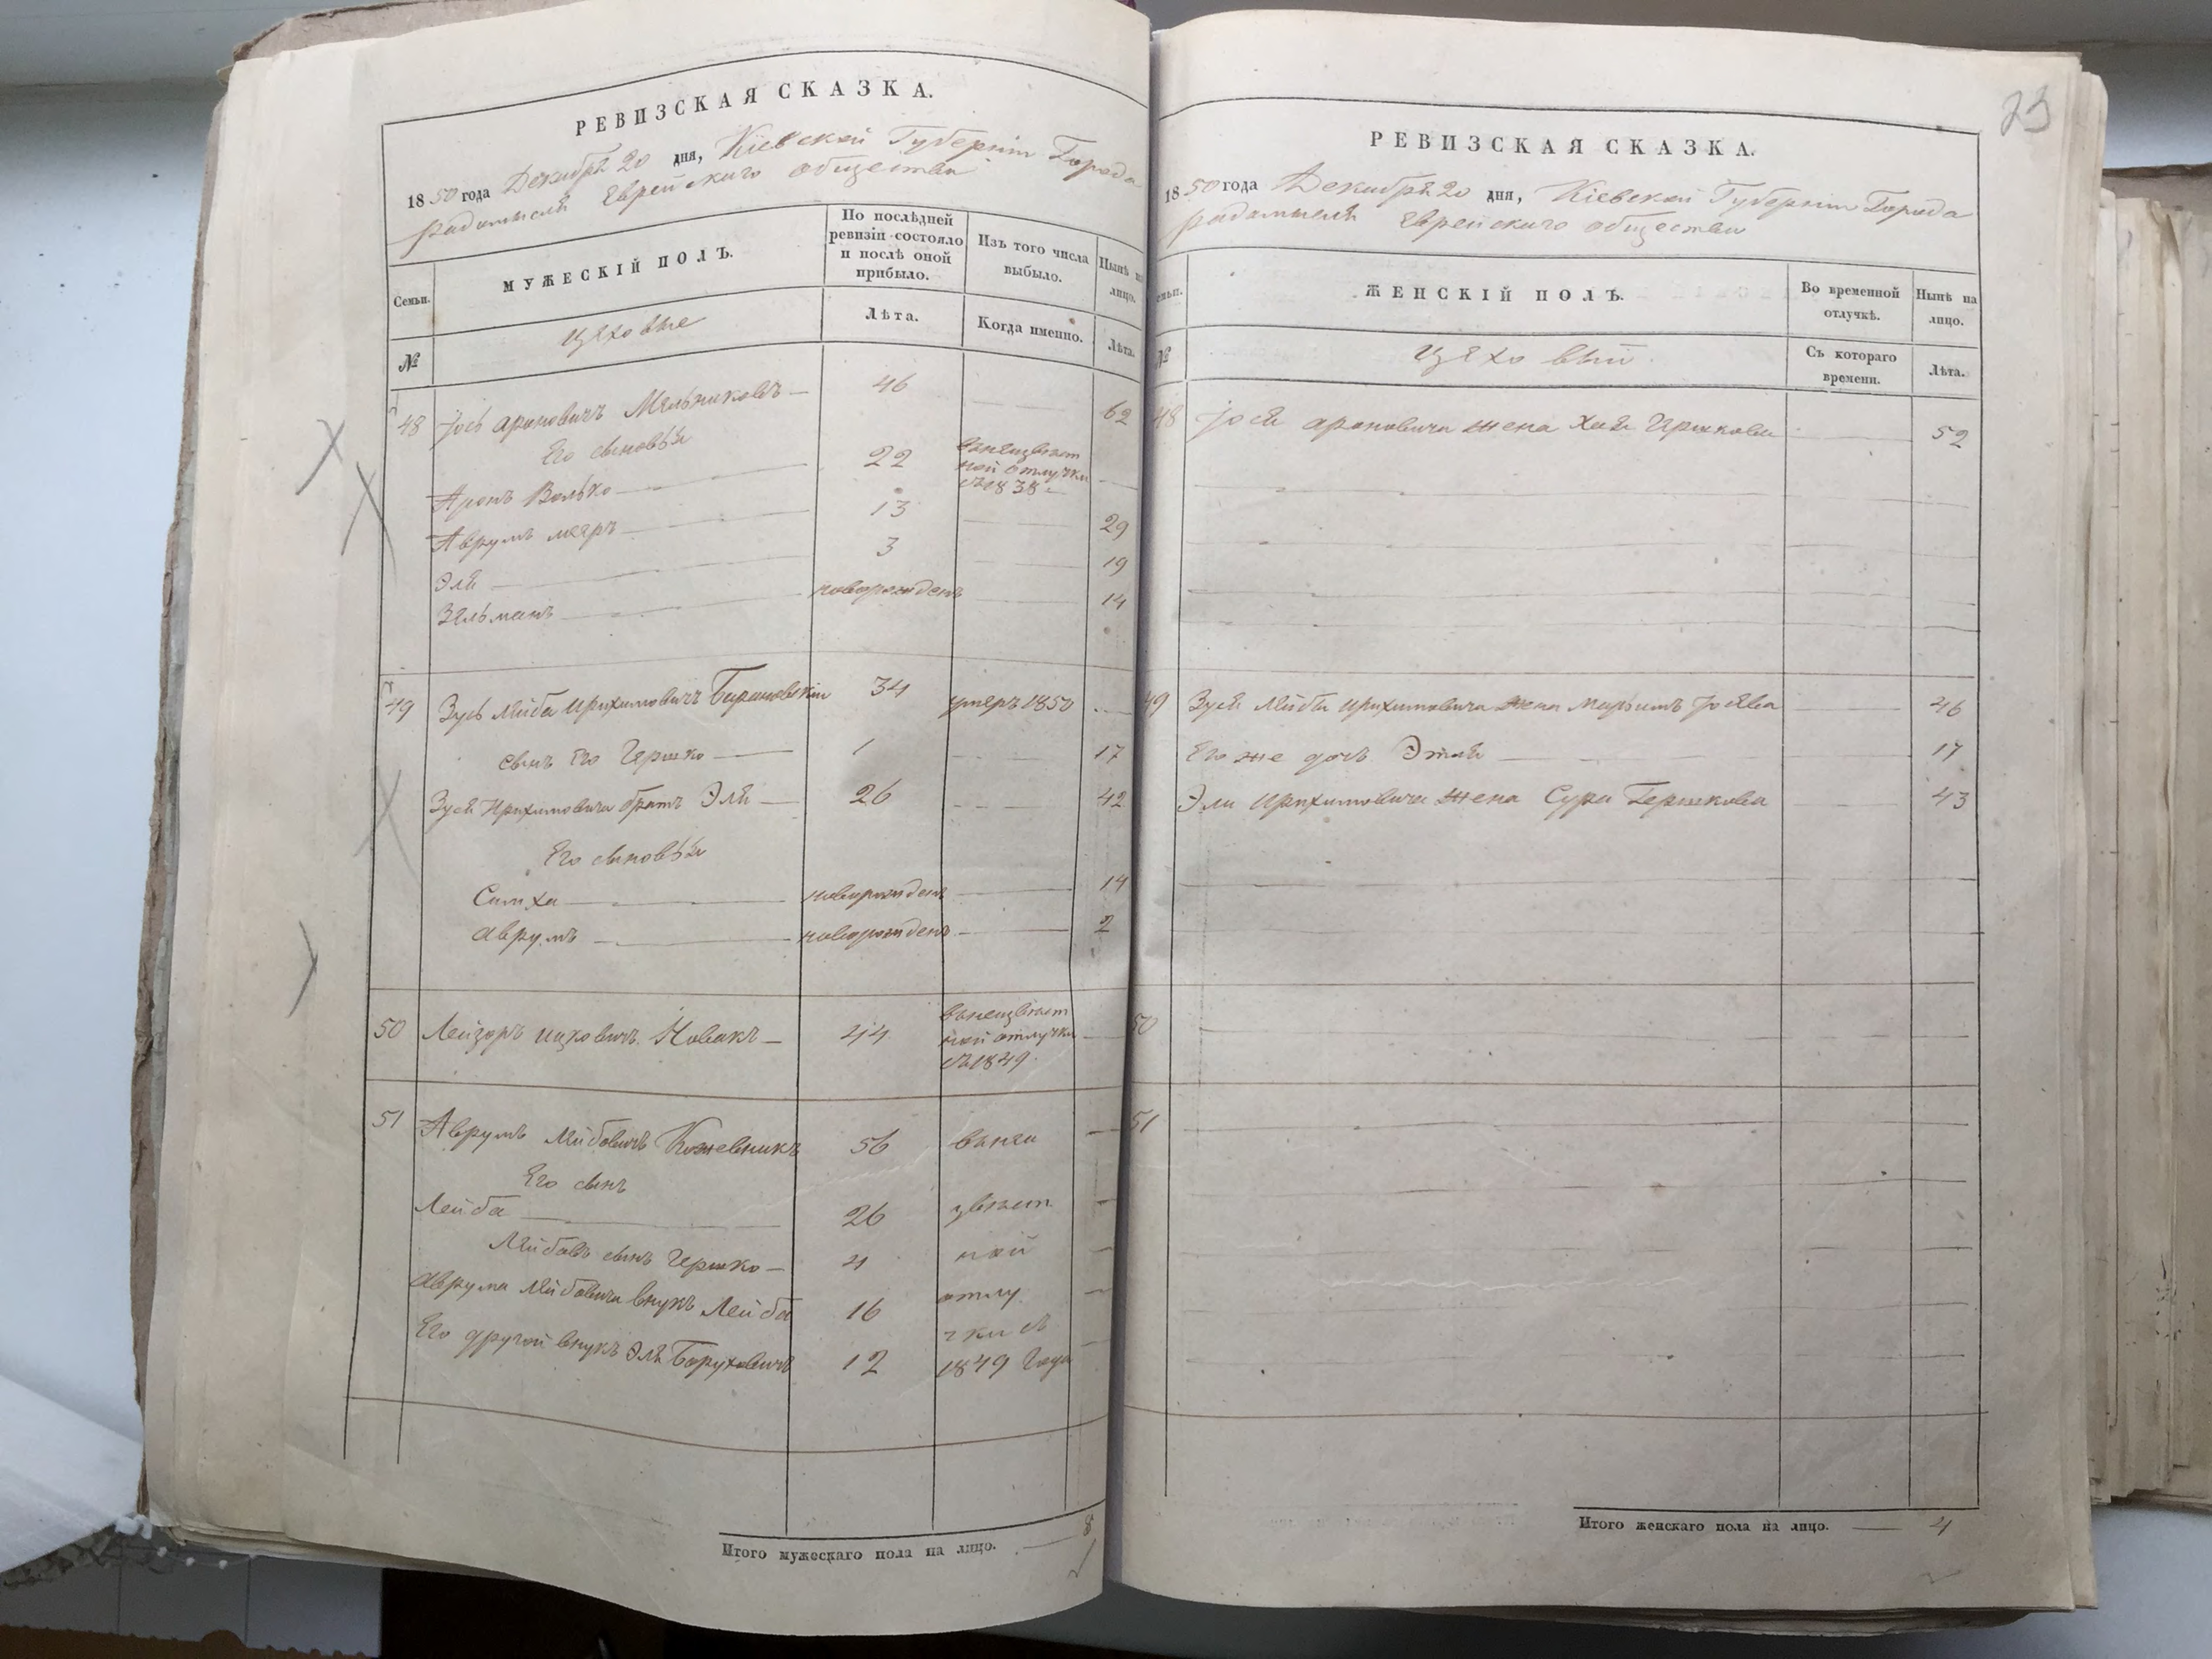 РЕВИЗСКАЯ СКАЗКА.
1850 года Декабря 20 дня, Кіевской Губерніи Города
радомысля Еврейскаго общества
Семьи.
МУЖЕСКІЙ ПОЛЪ.
По послѣдней ревизіи состояло и послѣ оной прибыло.
Изъ того числа выбыло.
Нынѣ на лицо.
№
Цеховые
Лѣта.
Когда именно.
Лѣта.
48 Іось Ароновичъ Мельниковъ 46 62
Его сыновья
Аронъ Волько 22 в неизвѣстной отлучки съ 1838
Аврумъ меяръ 13 29
Эля 3 19
Зельманъ новорожденъ 14
49 Зусь Лейба Ирихимовичъ Барановскій 34 умеръ 1850
сынъ Его Гершко 1 17
Зуся Ирихимовича братъ Эля 26 42
Его сыновья
Симха новорожденъ 14
Аврумъ новорожденъ 2
50 Лейзоръ ицковичъ Новакъ 44 в неизвѣстной отлучки съ 1849
51 Аврумъ Лейбовичъ Кожевникъ 56 в неи
Его сынъ
Лейба 26 звѣст
Лейбовъ сынъ Гершко 4 ной
Аврума Лейбовича внукъ Лейба 16 отлу
Его другой внукъ Эля Боруховичъ 12 чки съ 1849 года
Итого мужескаго пола на лицо. 8
23
РЕВИЗСКАЯ СКАЗКА.
1850 года Декабря 20 дня, Кіевской Губерніи Города
радомысля Еврейскаго общества
ЖЕНСКІЙ ПОЛЪ.
Во временной отлучкѣ.
Нынѣ на лицо.
№
Цеховыи
Съ котораго времени.
Лѣта.
48 Іося ароновича жена Хая Гершкова 52
49 Зуся Лейба Ирихимовича жена Марьимъ Іосева 46
Его же дочь Этля 17
Эли Ирихимовича жена Сура Гершкова 43
50
51
Итого женскаго пола на лицо. 4